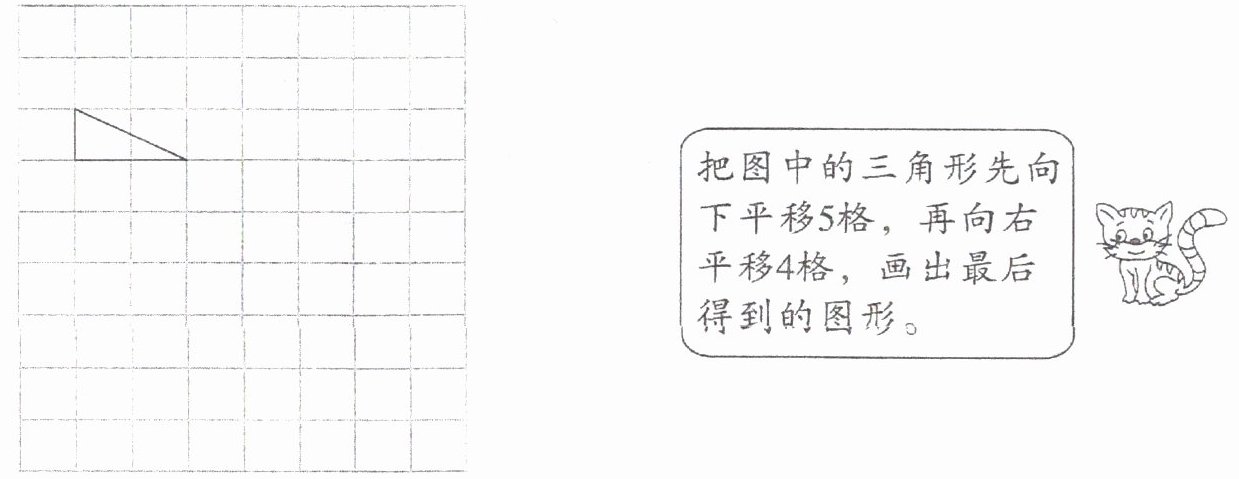 把图中的三角形先向
下平移5格，再向右
平移4格，画出最后
得到的图形。